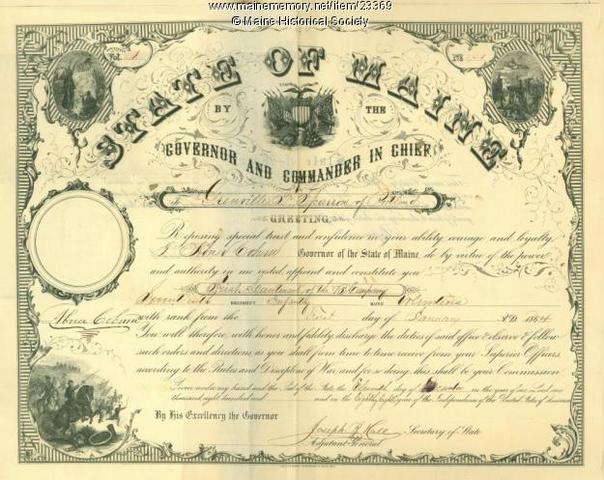 www.mainememory.net/item/23369
© Maine Historical Society
STATE OF MAINE
BY THE
GOVERNOR AND COMMANDER IN CHIEF,
To Grenville F. Sparrow of Portland
GREETING.
Reposing special trust and confidence in your ability courage and loyalty
I Abner Coburn Governor of the State of Maine do by virtue of the power
and authority in me vested appoint and constitute you
First Lieutenant of the Company
Seventeenth REGIMENT Infantry MAINE Volunteers
Abner Coburn
with rank from the First day of January AD 1864
You will therefore with honor and fidelity discharge the duties of said office & observe & follow
such orders and directions as you shall from time to time receive from your Superior Officers
according to the Rules and Discipline of War and for so doing this shall be your Commission
Given under my hand and the Seal of the State the day of in the year of our Lord one
thousand eight hundred and and in the Eighty eighth year of the Independence of the United States of America
By His Excellency the Governor
Joseph B. Hall Secretary of State
Adjutant General